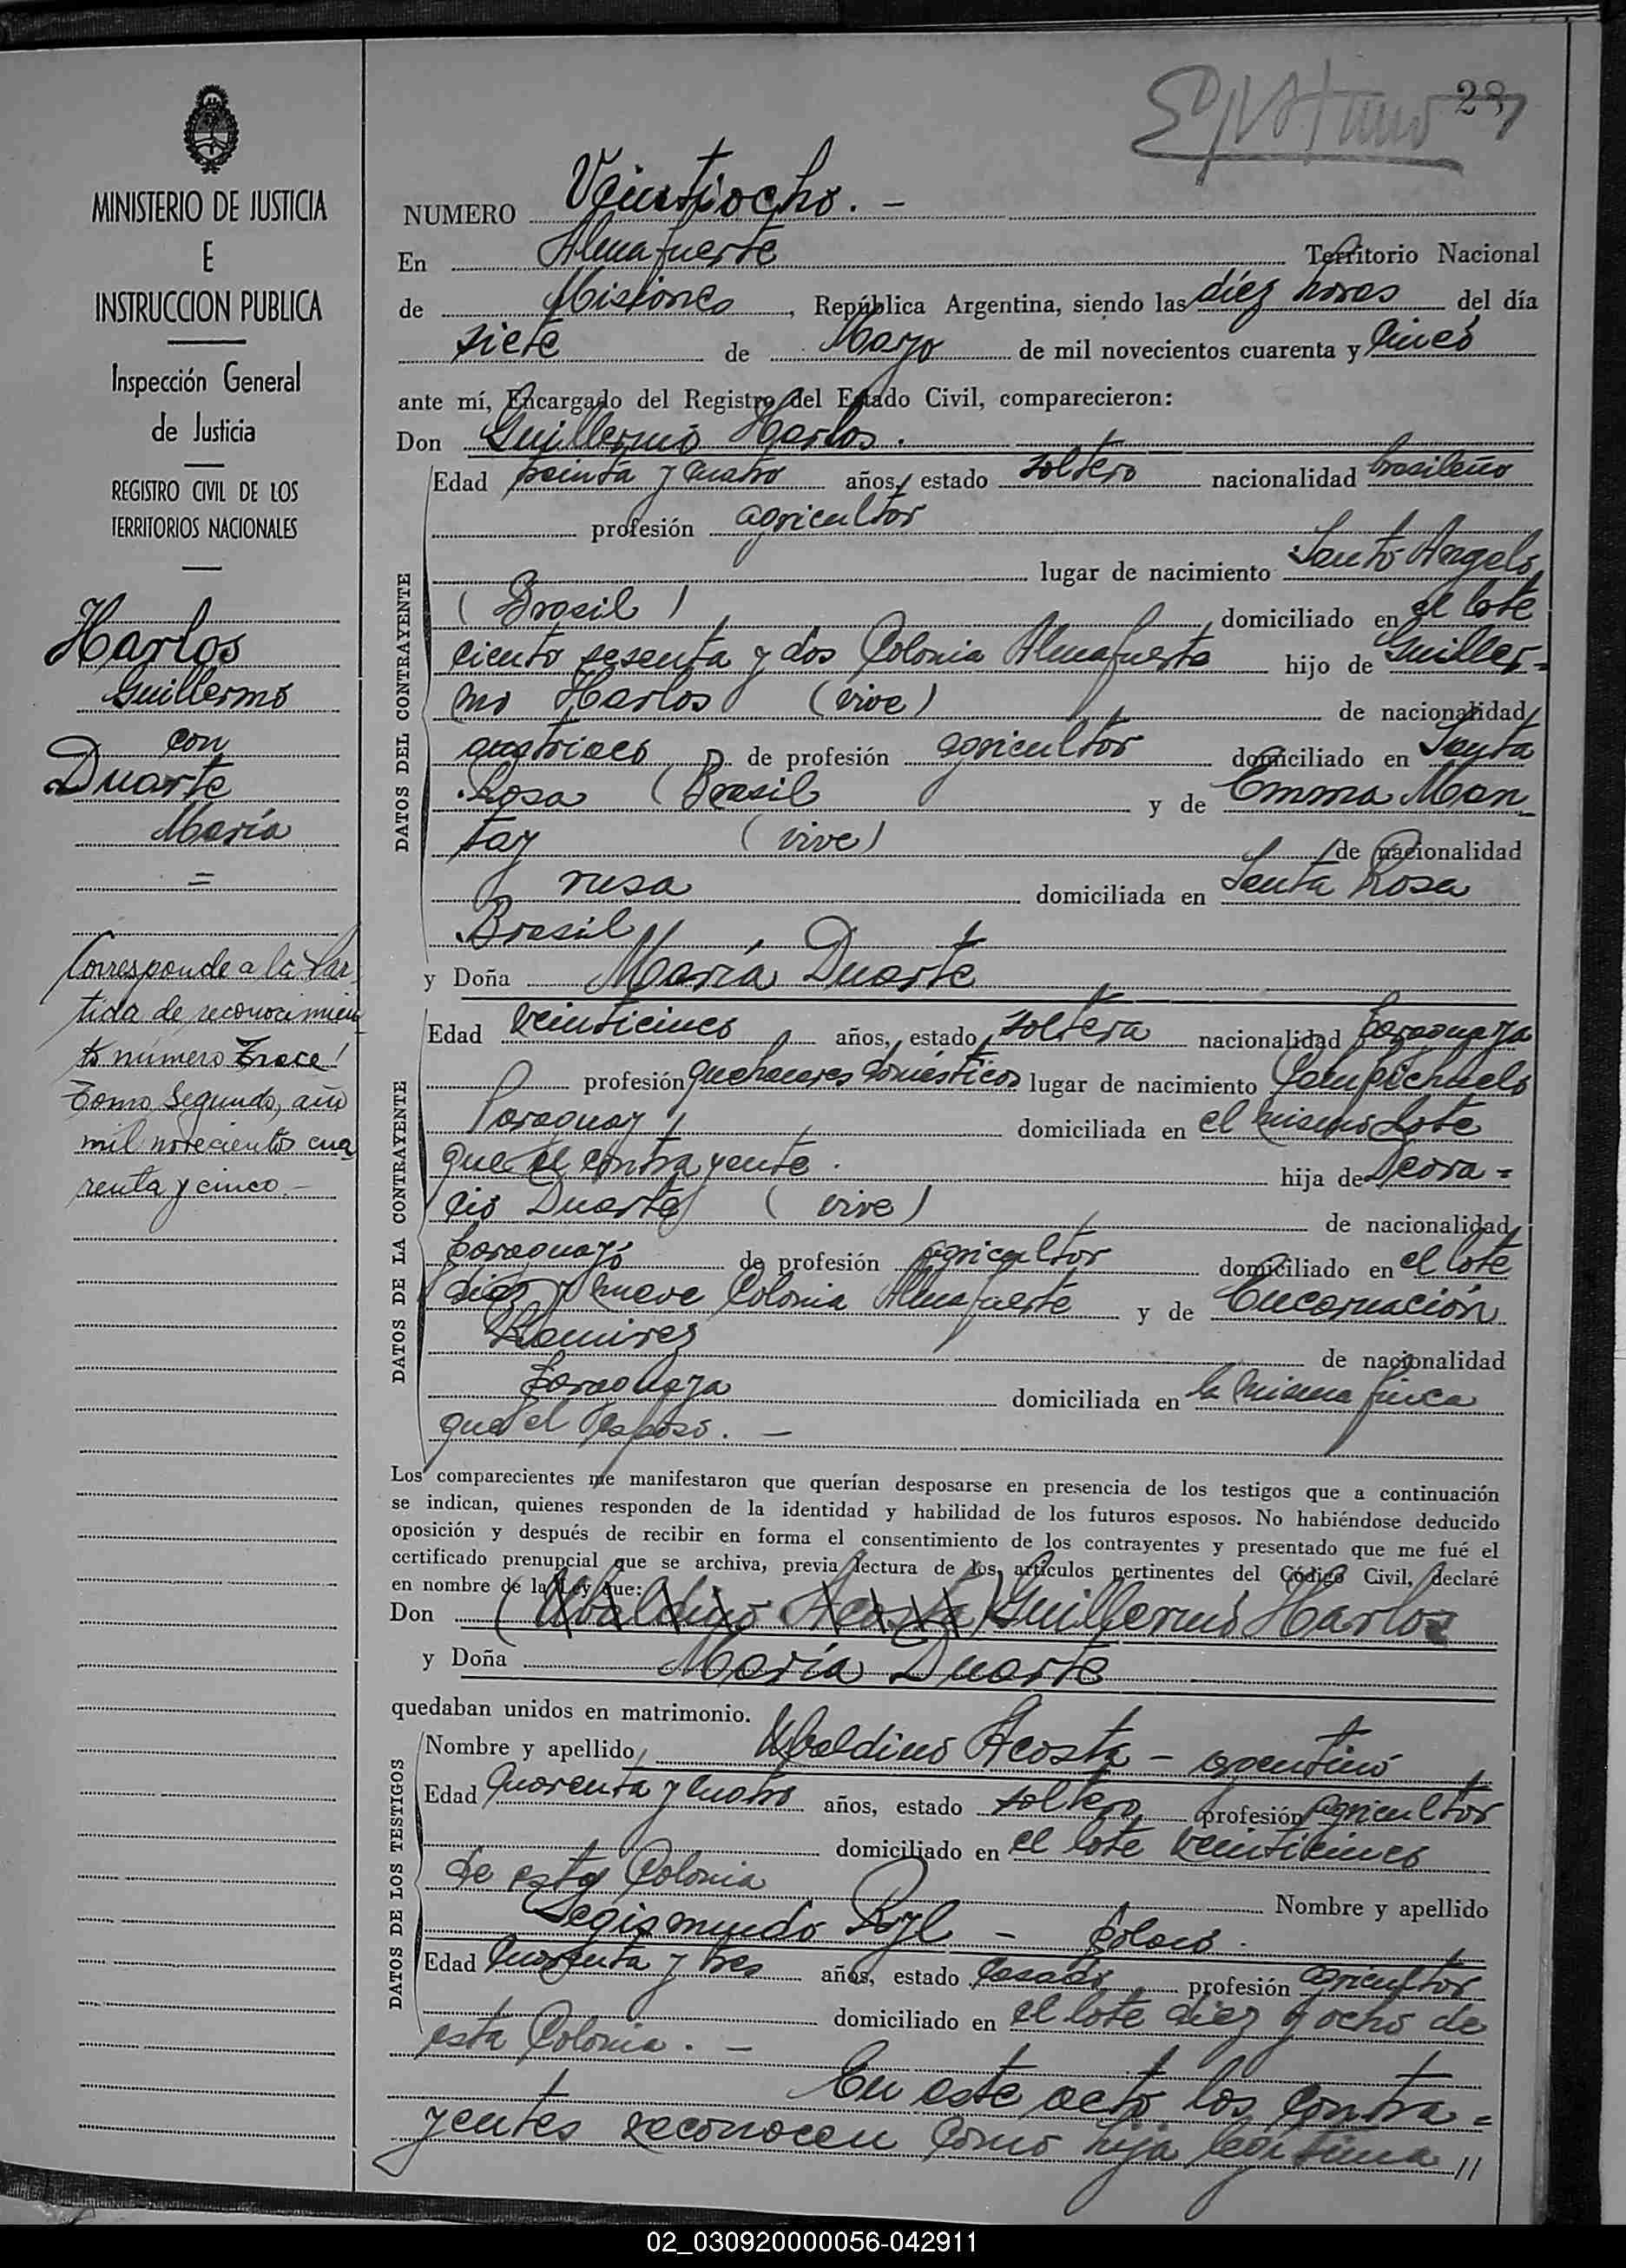 28
MINISTERIO DE JUSTICIA
E
INSTRUCCION PUBLICA
Inspección General
de Justicia
REGISTRO CIVIL DE LOS
TERRITORIOS NACIONALES
Harlos
Guillermo
con
Duarte
María
=
Corresponde a la Par
tida de reconocimien
to número Trece
Tomo Segundo, año
mil novecientos cua
renta y cinco.-
NUMERO Veintiocho. -
En Almafuerte Territorio Nacional
de Misiones, República Argentina, siendo las diez horas del día
siete de Mayo de mil novecientos cuarenta y cinco
ante mí, Encargado del Registro del Estado Civil, comparecieron:
Don Guillermo Harlos.
DATOS DEL CONTRAYENTE
Edad treinta y cuatro años, estado soltero nacionalidad brasileño
profesión agricultor
lugar de nacimiento Santo Angelo
(Brasil) domiciliado en el lote
ciento sesenta y dos Colonia Almafuerte hijo de Guiller=
mo Harlos (vive) de nacionalidad
austriaco de profesión agricultor domiciliado en Santa
Rosa (Brasil y de Emma Man
tay (vive) de nacionalidad
rusa domiciliada en Santa Rosa
Brasil
y Doña María Duarte
DATOS DE LA CONTRAYENTE
Edad veinticinco años, estado soltera nacionalidad paraguaya
profesión quehaceres domésticos lugar de nacimiento Campichuelo
Paraguay domiciliada en el mismo lote
que el contrayente. hija de Deora=
cio Duarte (vive) de nacionalidad
paraguayo de profesión agricultor domiciliado en el lote
diez y nueve Colonia Almafuerte y de Encarnación
Ramirez de nacionalidad
paraguaya domiciliada en la misma finca
que el esposo. -
Los comparecientes me manifestaron que querían desposarse en presencia de los testigos que a continuación
se indican, quienes responden de la identidad y habilidad de los futuros esposos. No habiéndose deducido
oposición y después de recibir en forma el consentimiento de los contrayentes y presentado que me fué el
certificado prenupcial que se archiva, previa lectura de los artículos pertinentes del Código Civil, declaré
en nombre de la Ley que:
Don (Ubaldino Acosta) Guillermo Harlos
y Doña María Duarte
quedaban unidos en matrimonio.
DATOS DE LOS TESTIGOS
Nombre y apellido Ubaldino Acosta - argentino
Edad cuarenta y cuatro años, estado soltero profesión agricultor
domiciliado en el lote veinticinco
de esta Colonia Nombre y apellido
Segismundo Ryl - polaco.
Edad cuarenta y tres años, estado casado profesión agricultor
domiciliado en el lote diez y ocho de
esta Colonia. -
En este acto los contra=
yentes reconocen como hija legítima //
02_030920000056-042911